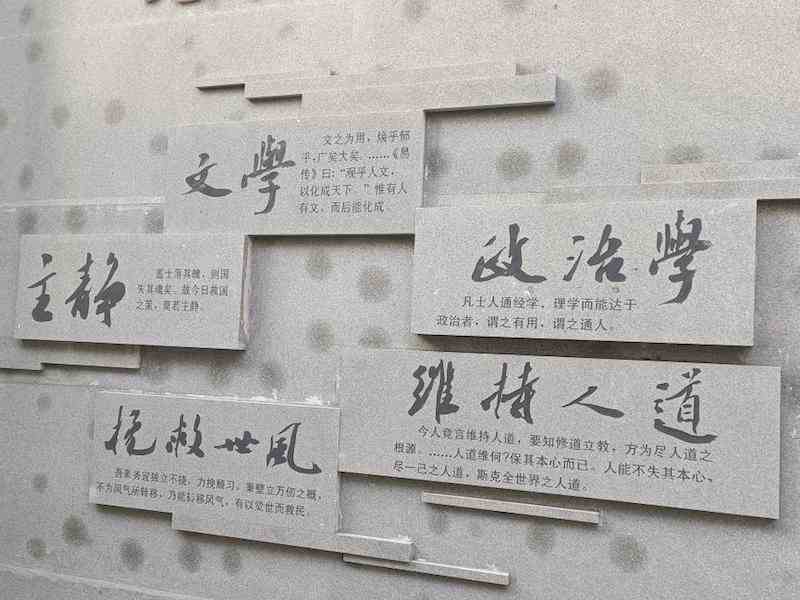 文學
文之为用，焕乎郁
乎，广矣大矣。……《易
传》曰：“观乎人文，
以化成天下。”惟有人
有文，而后能化成。
主静
盖士落其魄，则国
失其魂矣。故今日救国
之策，莫若主静。
政治學
凡士人通经学、理学而能达于
政治者，谓之有用，谓之通人。
挽救世风
吾来务宜独立不挠，力挽颓习，秉壁立万仞之概，
不为风气所转移，乃能转移风气，有以觉世而救民。
维持人道
今人竞言维持人道，要知修道立教，方为尽人道之
根源。……人道维何？保其本心而已。人能不失其本心、
尽一己之人道，斯克全世界之人道。